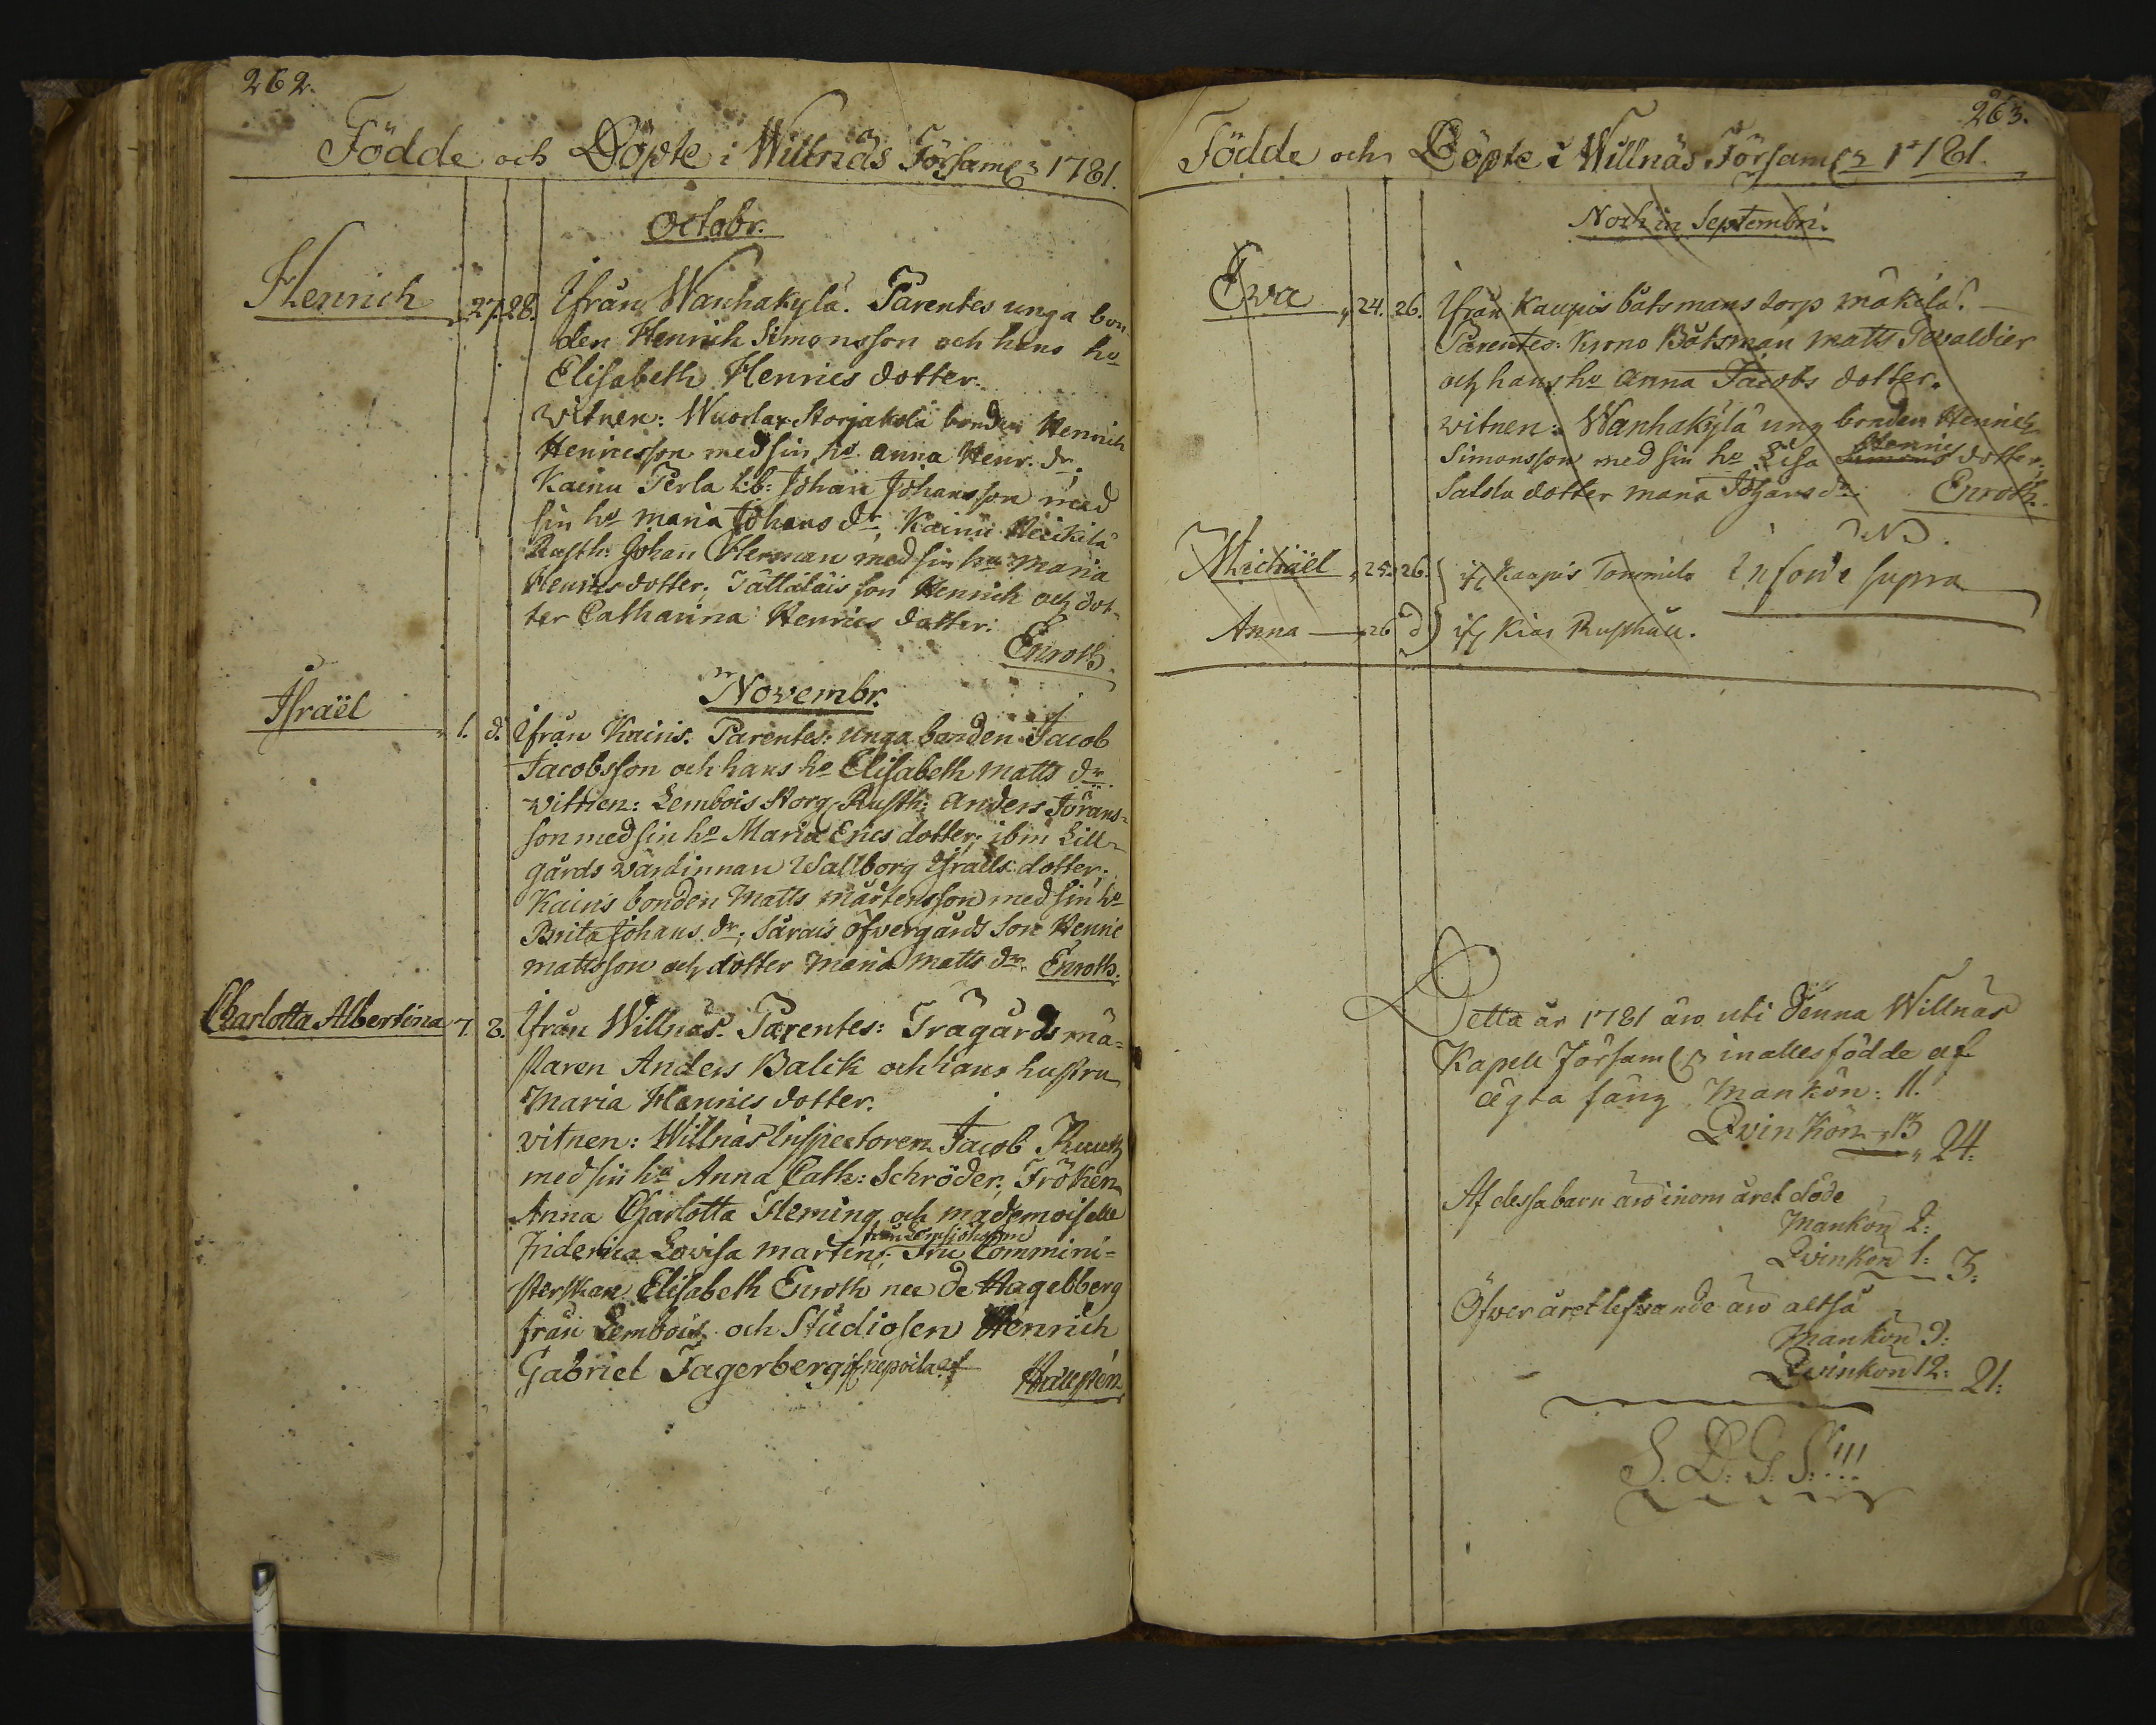 262.
Födde och Döpte i Willnäs Församl. 1781.
Octobr.
Henrich 27. 28. Ifrån Wanhakylä. Parentes unga bon
den Henrich Simonsson och hans ho
Elisabeth Henrics dotter.
witnen: Wuorlax Storjakola bonden Henrich
Henricsson med sin ho Anna Henr. dr
Kainu Perla Lb: Johan Johansson med
sin ho Maria Johans dr, Kainu Heikilä
Rusth: Johan Herman med sin hu Maria
Henrics dotter; Tättäläis son Henrich och dot-
ter Catharina Henrics dotter:
Enroth.
Novembr.
Israël 1. d. Ifrån Kairis. Parentes: unga bonden Jacob
Jacobsson och hans ho Elisabeth Matts dr.
witnen: Lembois Storg. Rusth: Anders Jörans-
son med sin ho Maria Erics dotter; ibm Lill-
gårds wärdinnan Wallborg Israels dotter;
Kairis bonden Matts Mårtensson med sin ho
Brita Johans dr; Särais öfvergårds son Henric
Mattsson och dotter Maria Matts dr. Enroth.
Charlotta Albertina 7. 8. Ifrån Willnäs. Parentes: Trägårds mä-
staren Anders Balck och hans hustru
Maria Hanrics dotter.
witnen: Willnäs Inspectoren Jacob Ruuth
med sin ha Anna Cath: Schröder, Fröken
Anna Charlotta Fleming och mademoiselle
från Lemsjöholm
Friderica Lovisa Martin; Fru Commini-
sterskan Elisabeth Enroth nee de Hagelberg
från Lembois och Studiosen Henrich
Gabriel Fagerberg
Hallpén
263.
Födde och Döpte i Willnäs Församl. 1781.
Noch in Septembri.
Ewa 24. 26. Ifrån Kaupis båtsmans torp mäkilä.
Parentes: Krono Båtsman Matts Tewaldier
och hans ho Anna Jacobs dotter.
witnen: Wanhakylä ung bonden Henrich
Henrics
Simonsson med sin ho Lisa Simons dotter;
dotter Maria Johans dr. Enroth.
Michaël 25. 26. if Kaupis Tommila införde supra
Anna 26 d if Kias Rusthåll.
Detta år 1781 äro uti denna Willnäs
Kapell Församl. in alles födde af
ägta säng Mankön: 11.
Qvinkön 13 24.
Af dessa barn äro inom året döde
Mankön 2:
Qvinkön 1: 3:
Öfver året lefvande äro altså
Mankön 9:
Qvinkön 12: 21:
S. D. G. S!!!